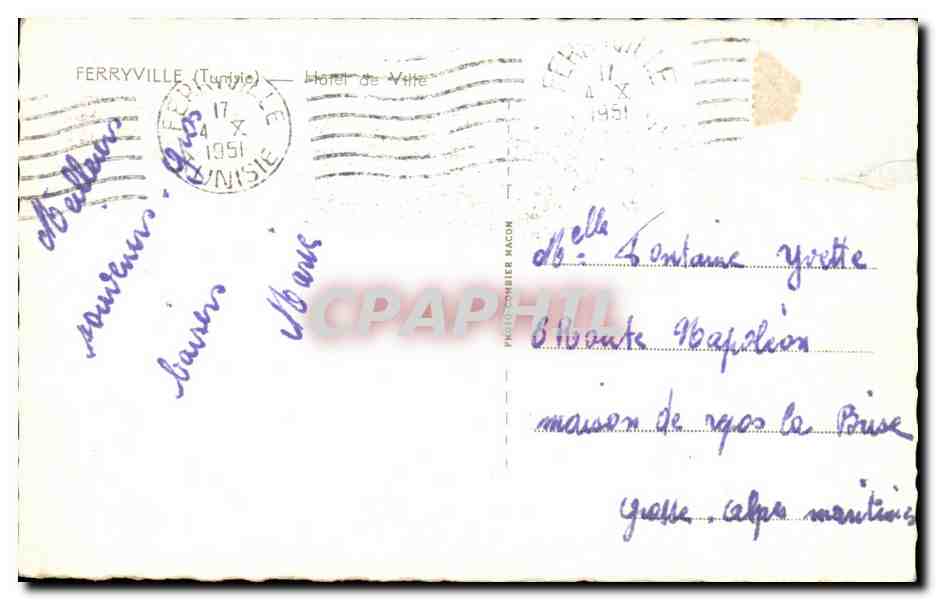 FERRYVILLE (Tunisie) — Hôtel de Ville
FERRYVILLE
17
4 X
1951
TUNISIE
FERRYVILLE
17
4 X
1951
Meilleurs
souvenirs. Gros
baisers
Marie
PHOTO-COMBIER MACON
CPAPHIL
Melle Fontaine Yvette
Route Napoléon
maison de repos la Brise
Grasse. Alpes maritimes